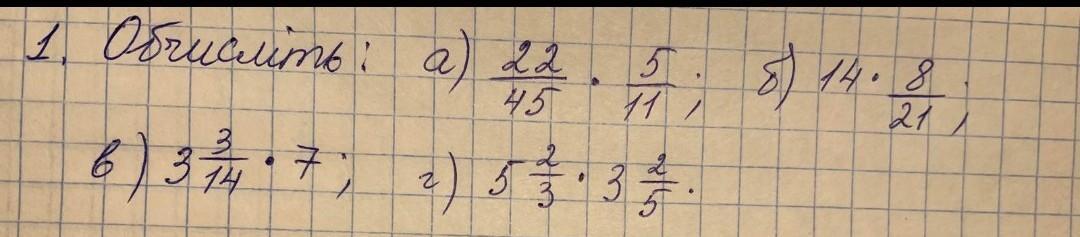 1. Обчисліть: а) 22/45 · 5/11; б) 14 · 8/21;
в) 3 3/14 · 7; г) 5 2/3 · 3 2/5.